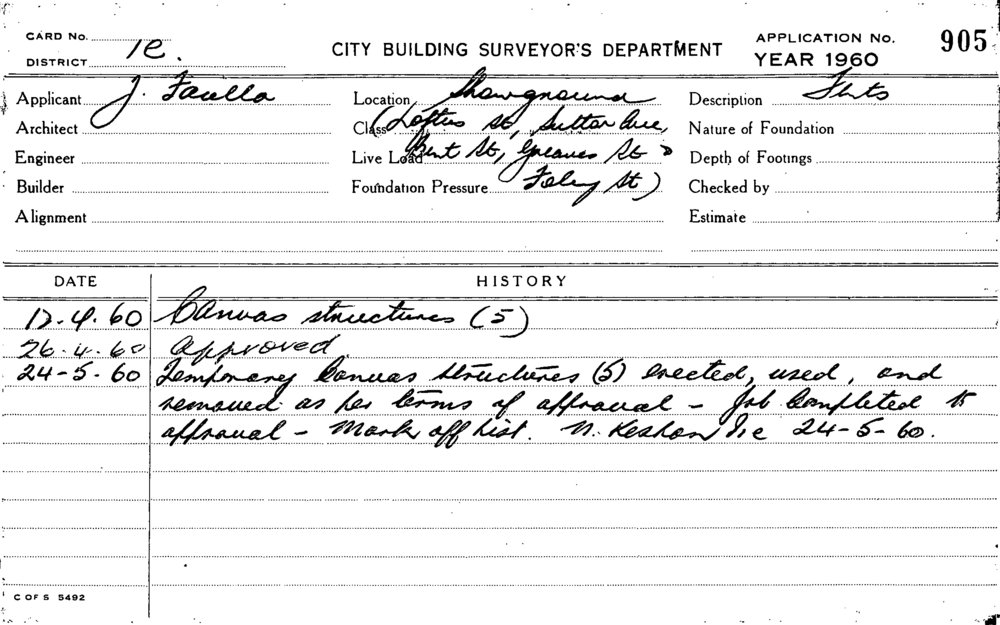 CARD No.
DISTRICT 1e.
CITY BUILDING SURVEYOR'S DEPARTMENT
APPLICATION No. 905
YEAR 1960
Applicant J. Faulla
Location Showground
Description Tents
Architect
Class (Loftus St, Sutton Ave,
Nature of Foundation
Engineer
Live Load Bent St, Greaves St &
Depth of Footings
Builder
Foundation Pressure Foley St)
Checked by
Alignment
Estimate
DATE HISTORY
12.4.60 Canvas structures (5)
26.4.60 approved
24-5-60 Temporary Canvas Structures (5) erected, used, and
removed as per terms of approval – Job Completed to
approval – Mark off List. 1e 24-5-60.
C OF S 5492